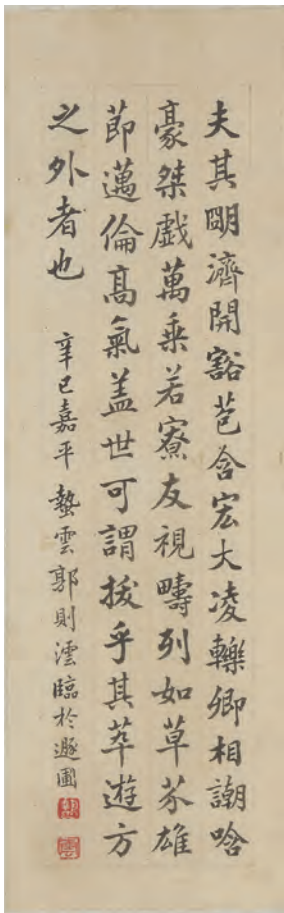 夫其明濟開豁苞含宏大凌轢卿相謿唅
豪桀戲萬乘若寮友視疇列如草芥雄
節邁倫高氣盖世可謂拔乎其萃遊方
之外者也
辛巳嘉平蟄雲郭則澐臨於遯圃